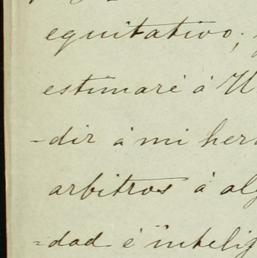 equitativo;
estimaré á U
-dir á mi her
arbitros á al
=dad é intelig